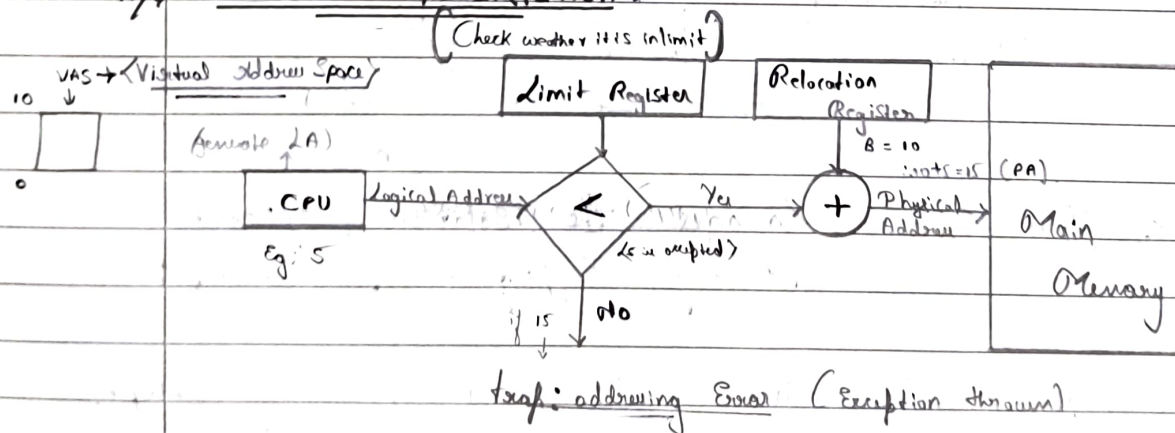 (Check weather it is in limit)
VAS → <Visitual Address Space>
Limit Register
Relocation
Register
10
(Generate LA)
B = 10
0
10+5=15 (PA)
.CPU
Logical Address
<
Yes
+
Physical
Address
Main
Memory
Eg: 5
<5 is accepted>
if 15
No
trap: addressing Error (Exception thrown)